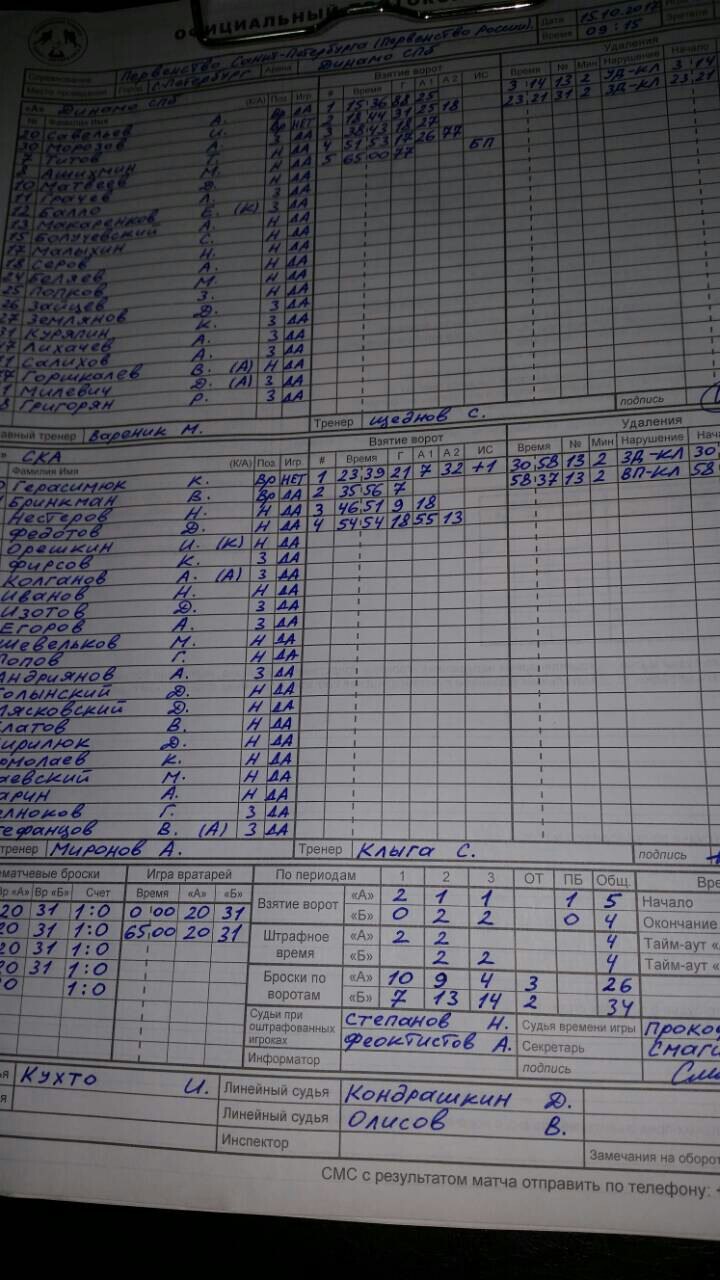 ОФИЦИАЛЬНЫЙ
Дата 15.10.2017
Соревнование Первенство Санкт-Петербурга (Первенство России) Время 09:15 Зрители
Место проведения Город С-Петербург Арена Динамо СПб
«А» Динамо СПб Взятие ворот Удаления
№ Фамилия Имя (К/А) Поз Игр # Время Г А1 А2 ИС Время № Мин Нарушение Начало
20 Савельев А. Вр ДА 1 15:36 88 25 3 14 13 2 УД-КЛ 3 14
30 Морозов И. Вр НЕТ 2 18:44 31 25 18 23 21 31 2 ЗД-КЛ 23 21
7 Титов А. З ДА 3 38:43 18 27
8 Ашихмин Т. Н ДА 4 51 53 17 26 77
10 Матвеев М. Н ДА 5 65:00 77 БП
11 Грачев Д. Н ДА
12 Балло Л. З ДА
13 Макаренков Е. (К) З ДА
15 Болучевский А. Н ДА
17 Малыхин С. Н ДА
18 Серов Н. Н ДА
24 Беляев А. Н ДА
25 Попков М. Н ДА
26 Зайцев З. Н ДА
27 Землянов Д. З ДА
31 Курялин К. З ДА
Лихачев А. З ДА
Салихов А. З ДА
Горшкалев В. (А) Н ДА
Милевич Д. (А) З ДА
Григорян Р. З ДА
тренер Вареник М. Тренер Щеднов С. подпись
СКА Взятие ворот Удаления
Фамилия Имя (К/А) Поз Игр # Время Г А1 А2 ИС Время № Мин Нарушение
Герасимюк К. Вр НЕТ 1 23 39 21 7 32 +1 30 58 13 2 ЗД-КЛ 30
Бринкман В. Вр ДА 2 35 56 7 58 37 13 2 ВП-КЛ 58
Нестеров Н. Н ДА 3 46 51 9 18
Федотов Д. Н ДА 4 54 54 18 55 13
Орешкин И. (К) Н ДА
Фирсов К. З ДА
Колганов А. (А) З ДА
Иванов Н. Н ДА
Изотов Д. З ДА
Егоров А. З ДА
Шевельков М. Н ДА
Попов Г. Н ДА
Андриянов А. З ДА
Голынский Д. Н ДА
Лясковский Д. Н ДА
латов В. Н ДА
ирилюк Д. Н ДА
рмолаев К. Н ДА
аевский М. Н ДА
арин А. Н ДА
елноков Г. З ДА
тефанцов В. (А) З ДА
тренер Миронов А. Тренер Клыга С. подпись
ематчевые броски Игра вратарей По периодам 1 2 3 ОТ ПБ Общ.
Вр «А» Вр «Б» Счет Время «А» «Б» Взятие ворот «А» 2 1 1 1 5 Начало
20 31 1:0 0 00 20 31 «Б» 0 2 2 0 4 Окончание
20 31 1:0 65:00 20 31 Штрафное время «А» 2 2 4 Тайм-аут
20 31 1:0 «Б» 2 2 4 Тайм-аут
20 31 1:0 Броски по воротам «А» 10 9 4 3 26
1:0 «Б» 7 13 14 2 34
Судьи при оштрафованных игроках Степанов Н. Судья времени игры
Феоктистов А. Секретарь
Информатор подпись
Кухто И. Линейный судья Кондрашкин Д.
Линейный судья Олисов В.
Инспектор Замечания на оборот
СМС с результатом матча отправить по телефону: